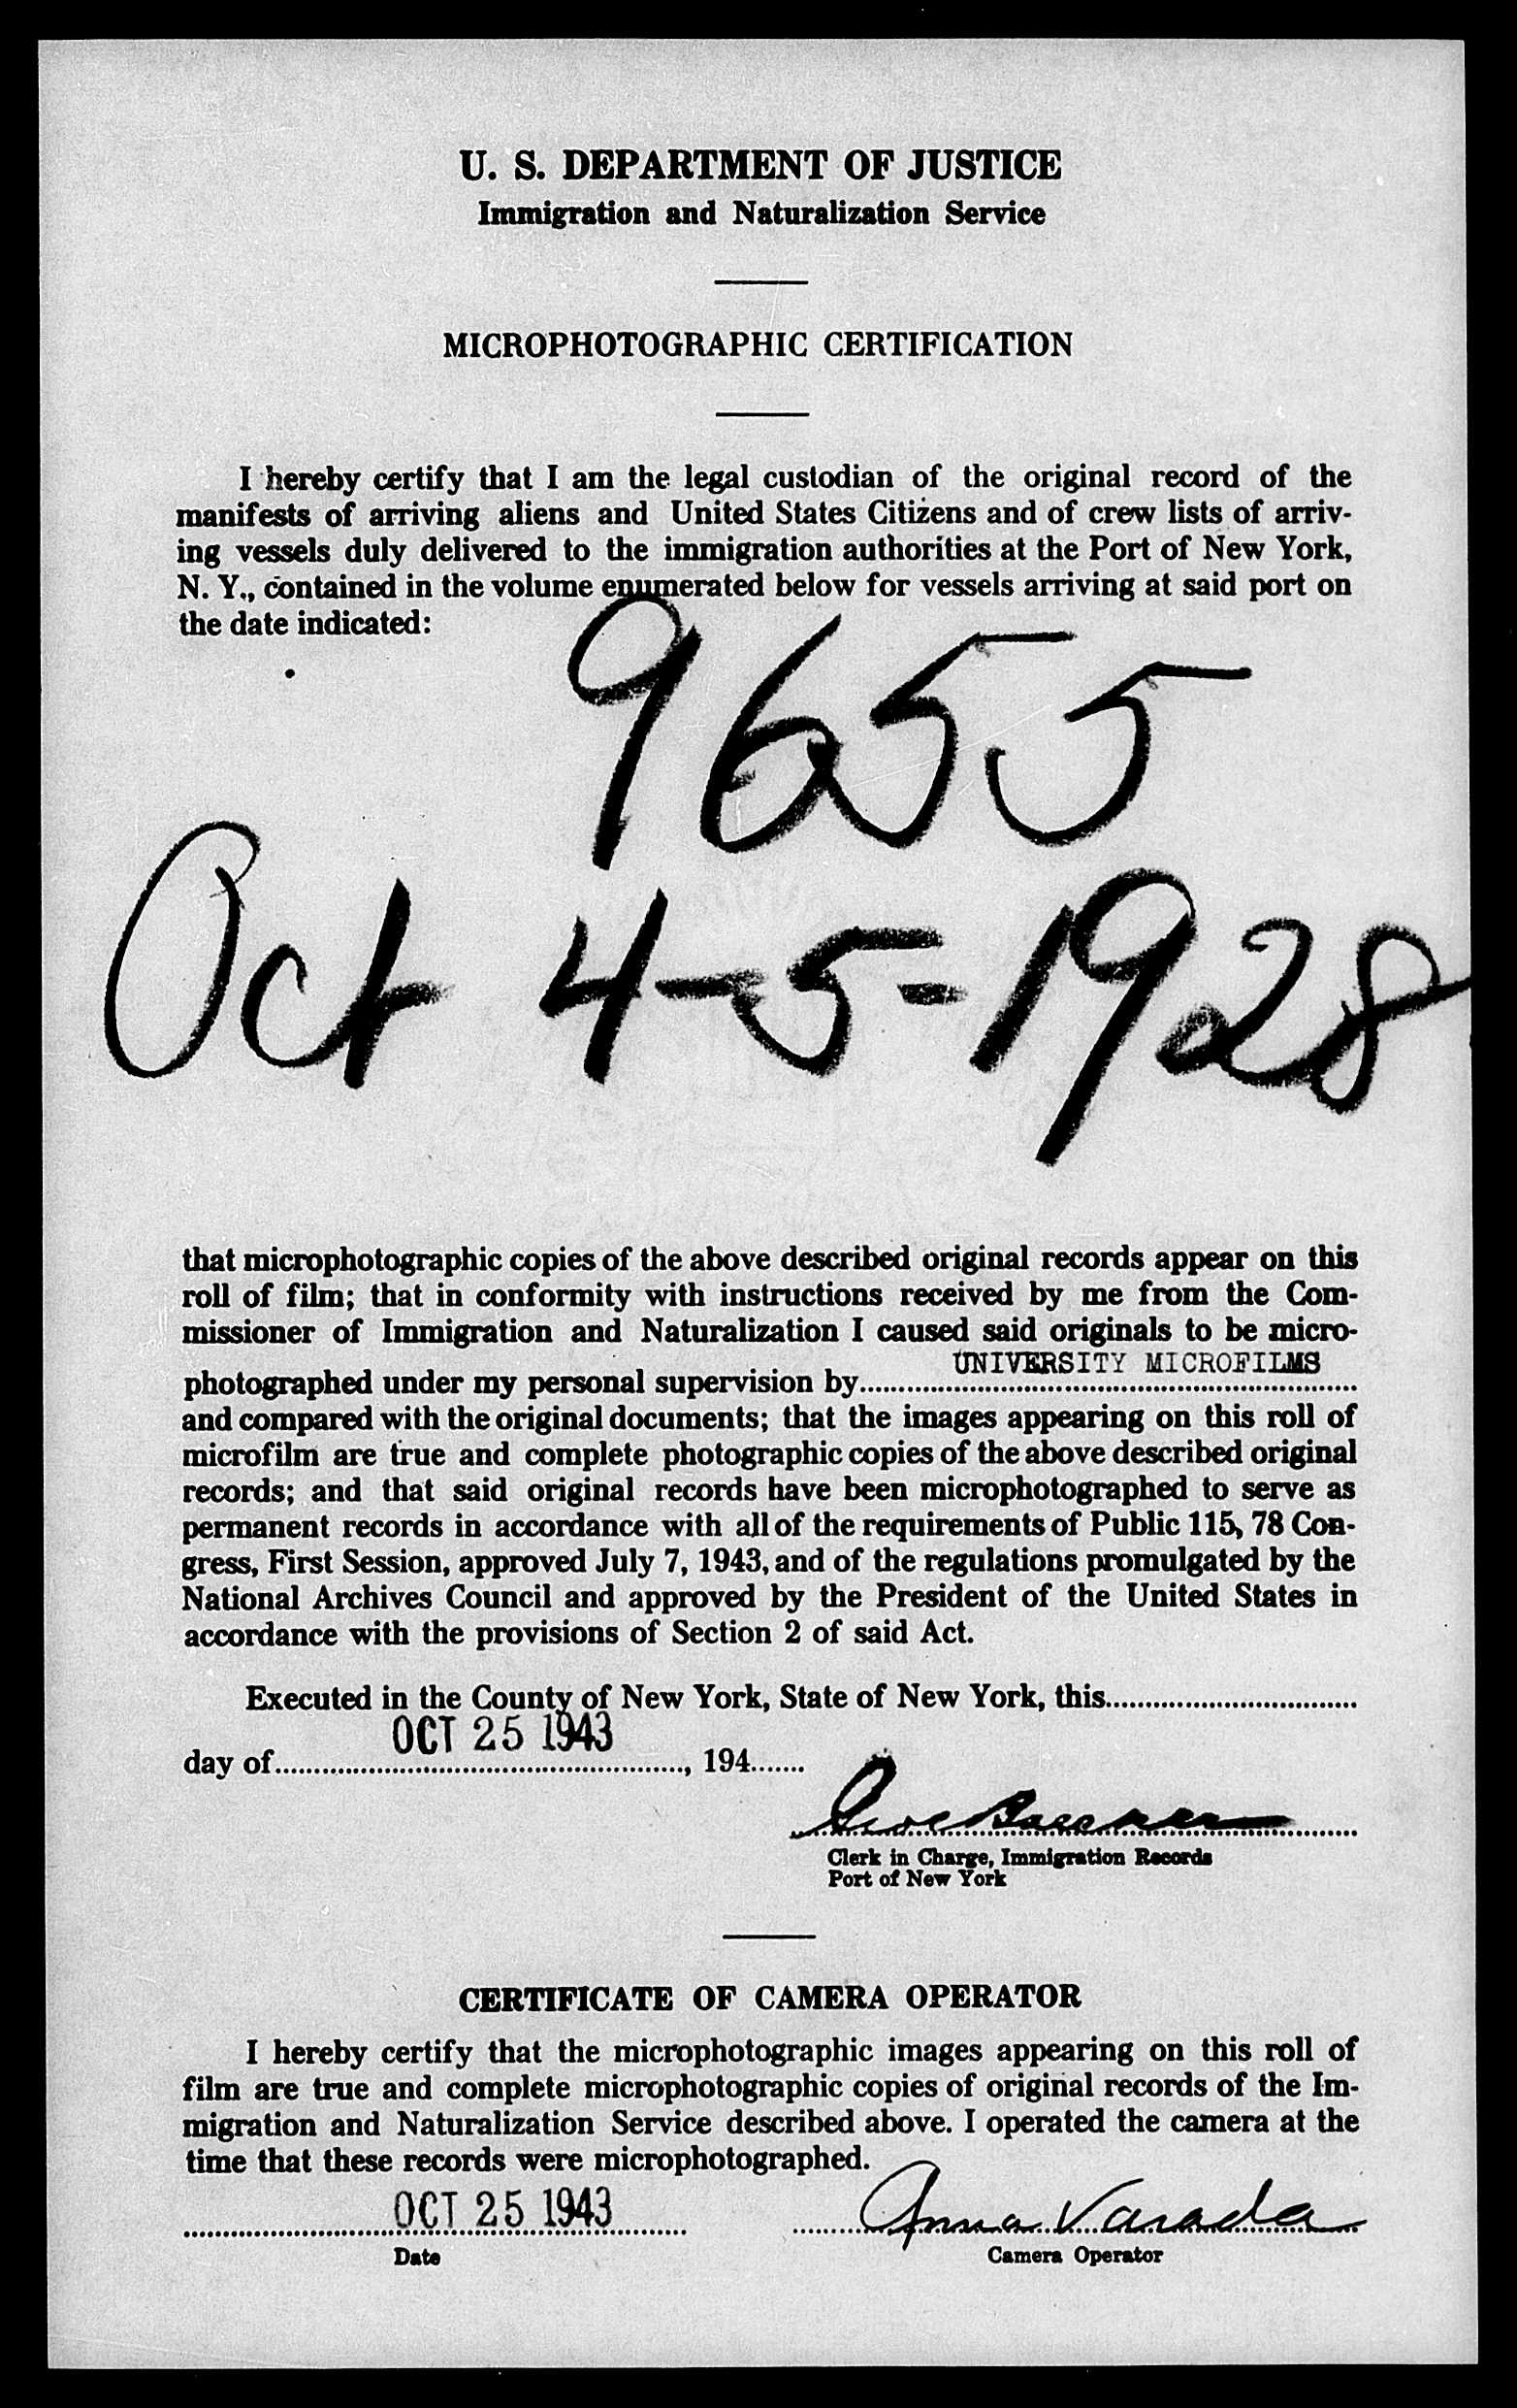 U. S. DEPARTMENT OF JUSTICE
Immigration and Naturalization Service
MICROPHOTOGRAPHIC CERTIFICATION
I hereby certify that I am the legal custodian of the original record of the
manifests of arriving aliens and United States Citizens and of crew lists of arriv-
ing vessels duly delivered to the immigration authorities at the Port of New York,
N. Y., contained in the volume enumerated below for vessels arriving at said port on
the date indicated:
9655
Oct 4-5-1928
that microphotographic copies of the above described original records appear on this
roll of film; that in conformity with instructions received by me from the Com-
missioner of Immigration and Naturalization I caused said originals to be micro-
UNIVERSITY MICROFILMS
photographed under my personal supervision by
and compared with the original documents; that the images appearing on this roll of
microfilm are true and complete photographic copies of the above described original
records; and that said original records have been microphotographed to serve as
permanent records in accordance with all of the requirements of Public 115, 78 Con-
gress, First Session, approved July 7, 1943, and of the regulations promulgated by the
National Archives Council and approved by the President of the United States in
accordance with the provisions of Section 2 of said Act.
Executed in the County of New York, State of New York, this
OCT 25 1943
day of, 194
Clerk in Charge, Immigration Records
Port of New York
CERTIFICATE OF CAMERA OPERATOR
I hereby certify that the microphotographic images appearing on this roll of
film are true and complete microphotographic copies of original records of the Im-
migration and Naturalization Service described above. I operated the camera at the
time that these records were microphotographed.
OCT 25 1943 Anna Varada
Date Camera Operator